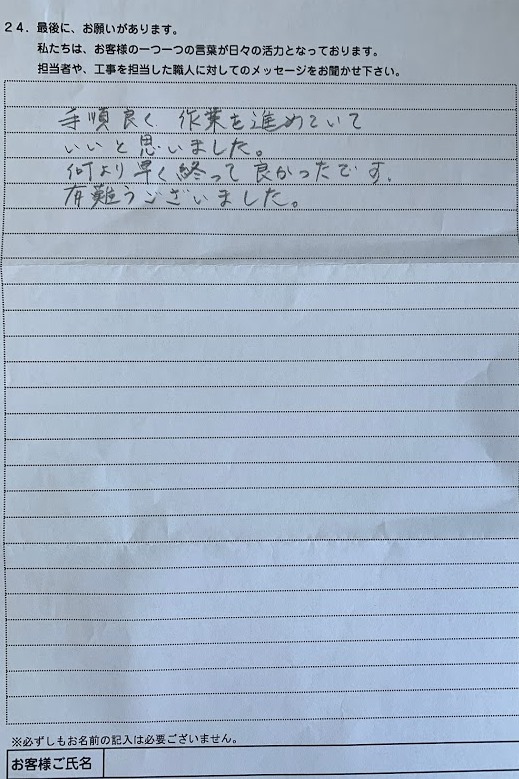 24. 最後に、お願いがあります。
私たちは、お客様の一つ一つの言葉が日々の活力となっております。
担当者や、工事を担当した職人に対してのメッセージをお聞かせ下さい。
手順良く 作業を進めていて
いいと思いました。
何より早く終って良かったです。
有難うございました。
※必ずしもお名前の記入は必要ございません。
お客様ご氏名